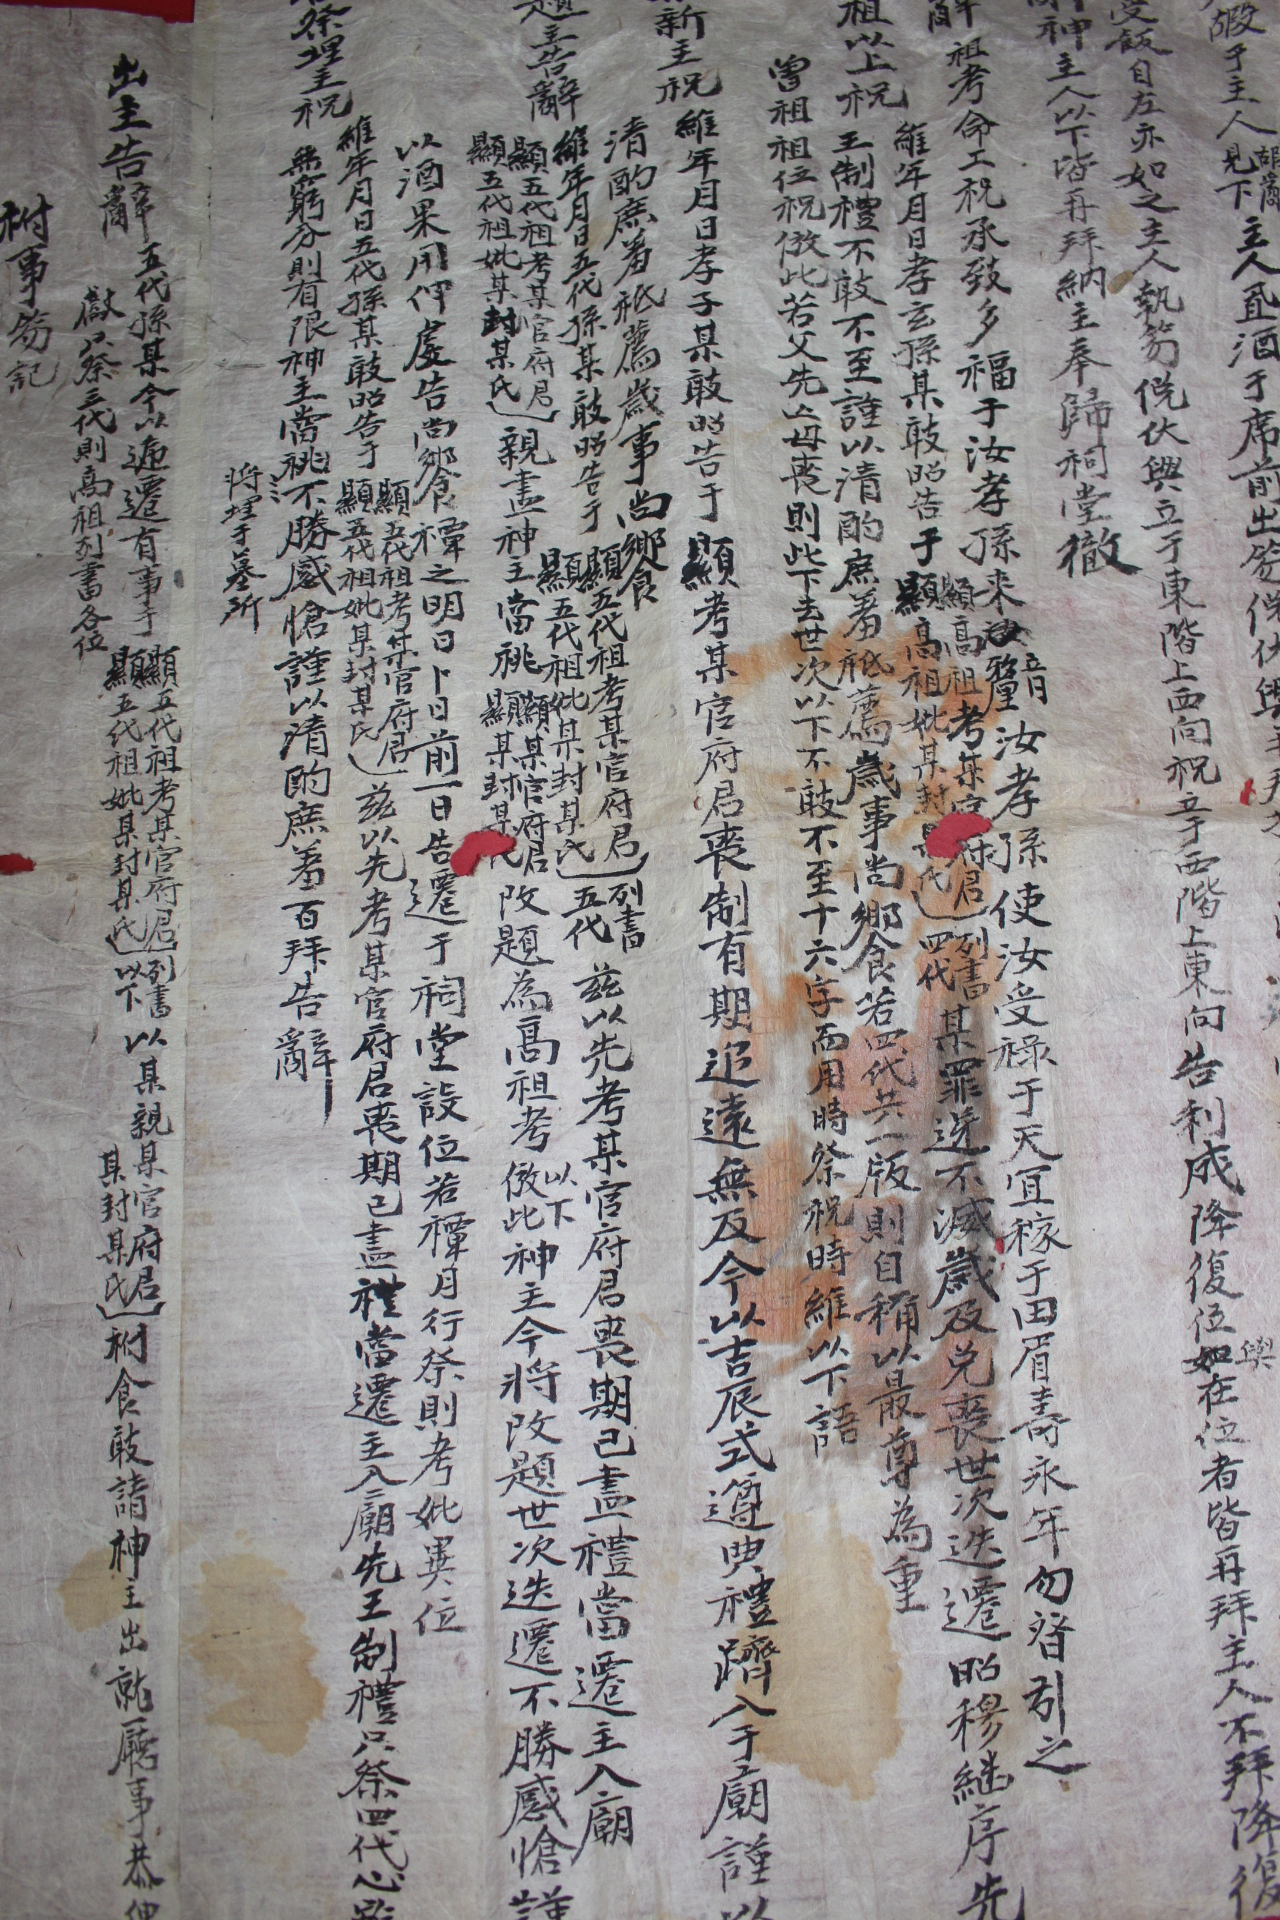 嘏于主人
嘏辭見下
主人酒于席前出笏俛伏興
受飯自左亦如之主人執笏俛伏興立于東階上西向祝立于西階上東向告利成降復位
與
在位者皆再拜主人不拜降復
神主人以下皆再拜納主奉歸祠堂徹
祖考命工祝承致多福于汝孝孫來汝
音釐
汝孝孫使汝受祿于天宜稼于田眉壽永年勿替引之
祖以上祝
維年月日孝玄孫某敢昭告于
顯高祖考某官府君
顯高祖妣某封某氏
列書四代
某罪逆不滅歲及免喪世次迭遷昭穆繼序先
王制禮不敢不至謹以清酌庶羞祗薦歲事尚饗若四代共一版則自稱以最尊為重
曾祖祖位祝倣此若父先亡母喪則此下去世次以下不敢不至十六字而用時祭祝時維以下語
新主祝
維年月日孝子某敢昭告于
顯考某官府君喪制有期追遠無及今以吉辰式遵典禮躋入于廟謹以
清酌庶羞祗薦歲事尚饗
題主告辭
維年月日五代孫某敢昭告于
顯五代祖考某官府君
顯五代祖妣某封某氏
列書五代
茲以先考某官府君喪期已盡禮當遷主入廟
顯五代祖考某官府君
顯五代祖妣某封某氏
親盡神主當祧
顯某官府君
顯某封某氏
改題為高祖考
以下倣此
神主今將改題世次迭遷不勝感愴謹
以酒果用伸虔告尚饗禫之明日卜日前一日告遷于祠堂設位若禫月行祭則考妣異位
祭埋主祝
維年月日五代孫某敢昭告于
顯五代祖考某官府君
顯五代祖妣某封某氏
茲以先考某官府君喪期已盡禮當遷主入廟先王制禮只祭四代心雖
無窮分則有限神主當祧
將埋于墓所
不勝感愴謹以清酌庶羞百拜告辭
出主告辭
五代孫某今以遞遷有事于
顯五代祖考某官府君
顯五代祖妣某封某氏
列書以下
以某親某官府君
某封某氏
祔食敢請神主出就廳事恭伸
獻只祭三代則高祖列書各位
祔事笏記